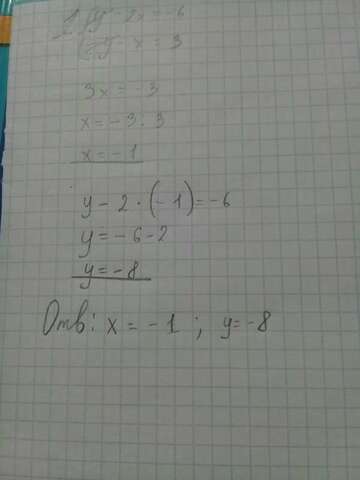 y - 2x = -6
y - x = 3
3x = -3
x = -3 : 3
x = -1
y - 2 · (-1) = -6
y = -6 - 2
y = -8
Отв: x = -1 ; y = -8